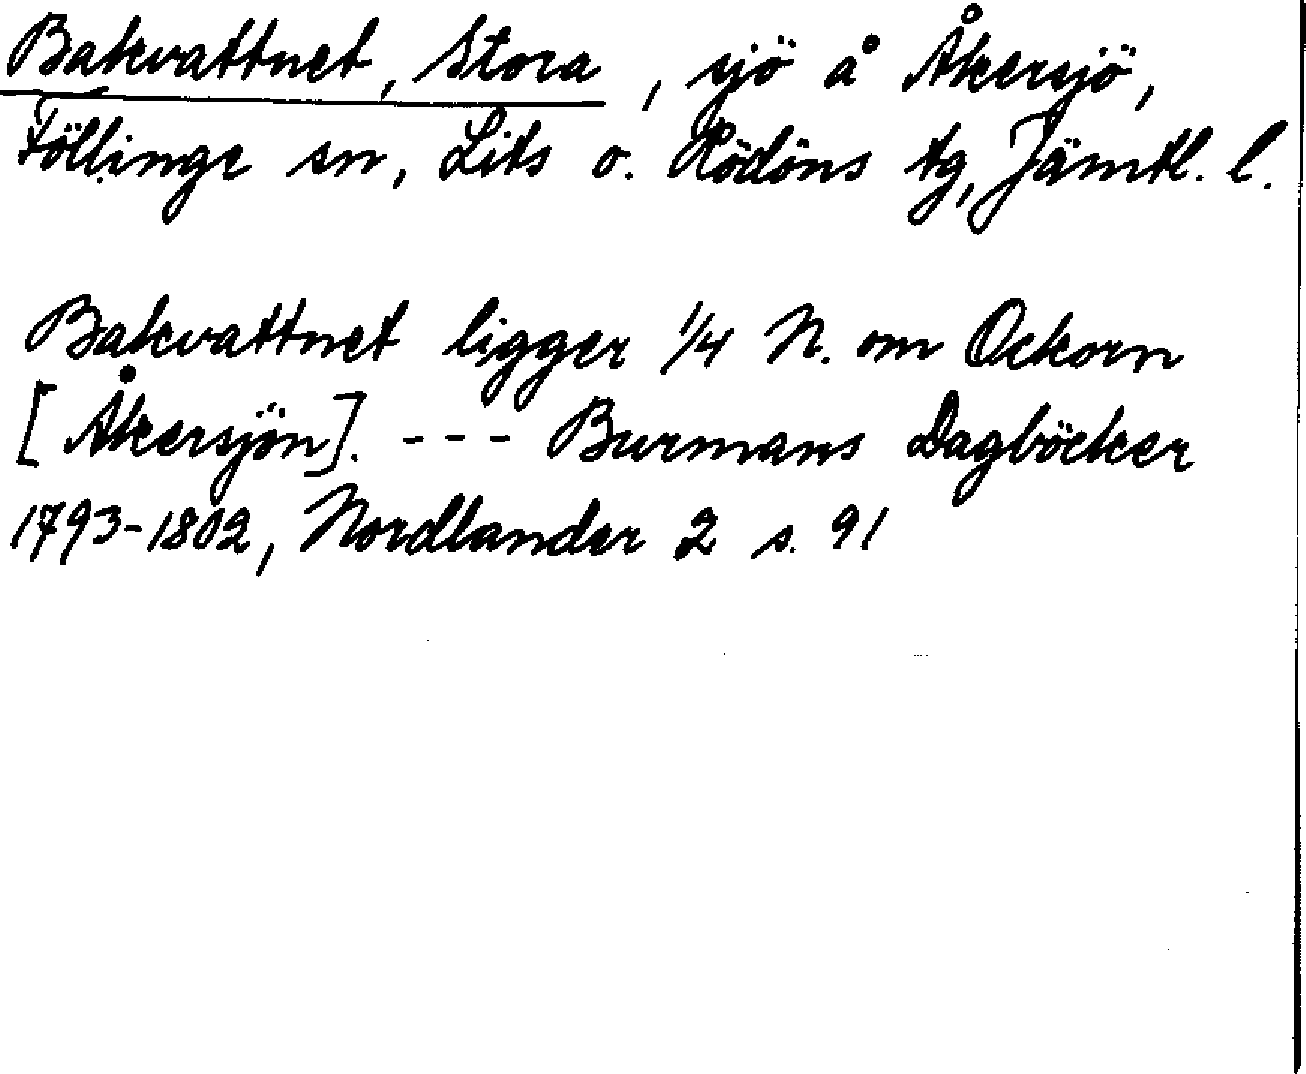 Bakvattnet, Stora, sjö å Åkersjö,
Föllinge sn, Lits o. Rödöns tg, Jämtl. l.
Bakvattnet ligger 1/4 N. om Ockorn
[Åkersjön]. --- Burmans Dagböcker
1793-1802, Nordlander 2 s. 91